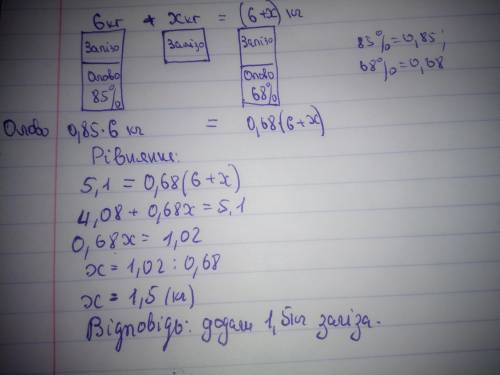 6кг + xкг = (6+x) кг
Залізо Залізо Залізо
85% = 0,85;
68% = 0,68
Олово 85% Олово 68%
Олово 0,85·6 кг = 0,68(6+x)
Рівняння:
5,1 = 0,68(6+x)
4,08 + 0,68x = 5,1
0,68x = 1,02
x = 1,02 : 0,68
x = 1,5 (кг)
Відповідь: додали 1,5кг заліза.